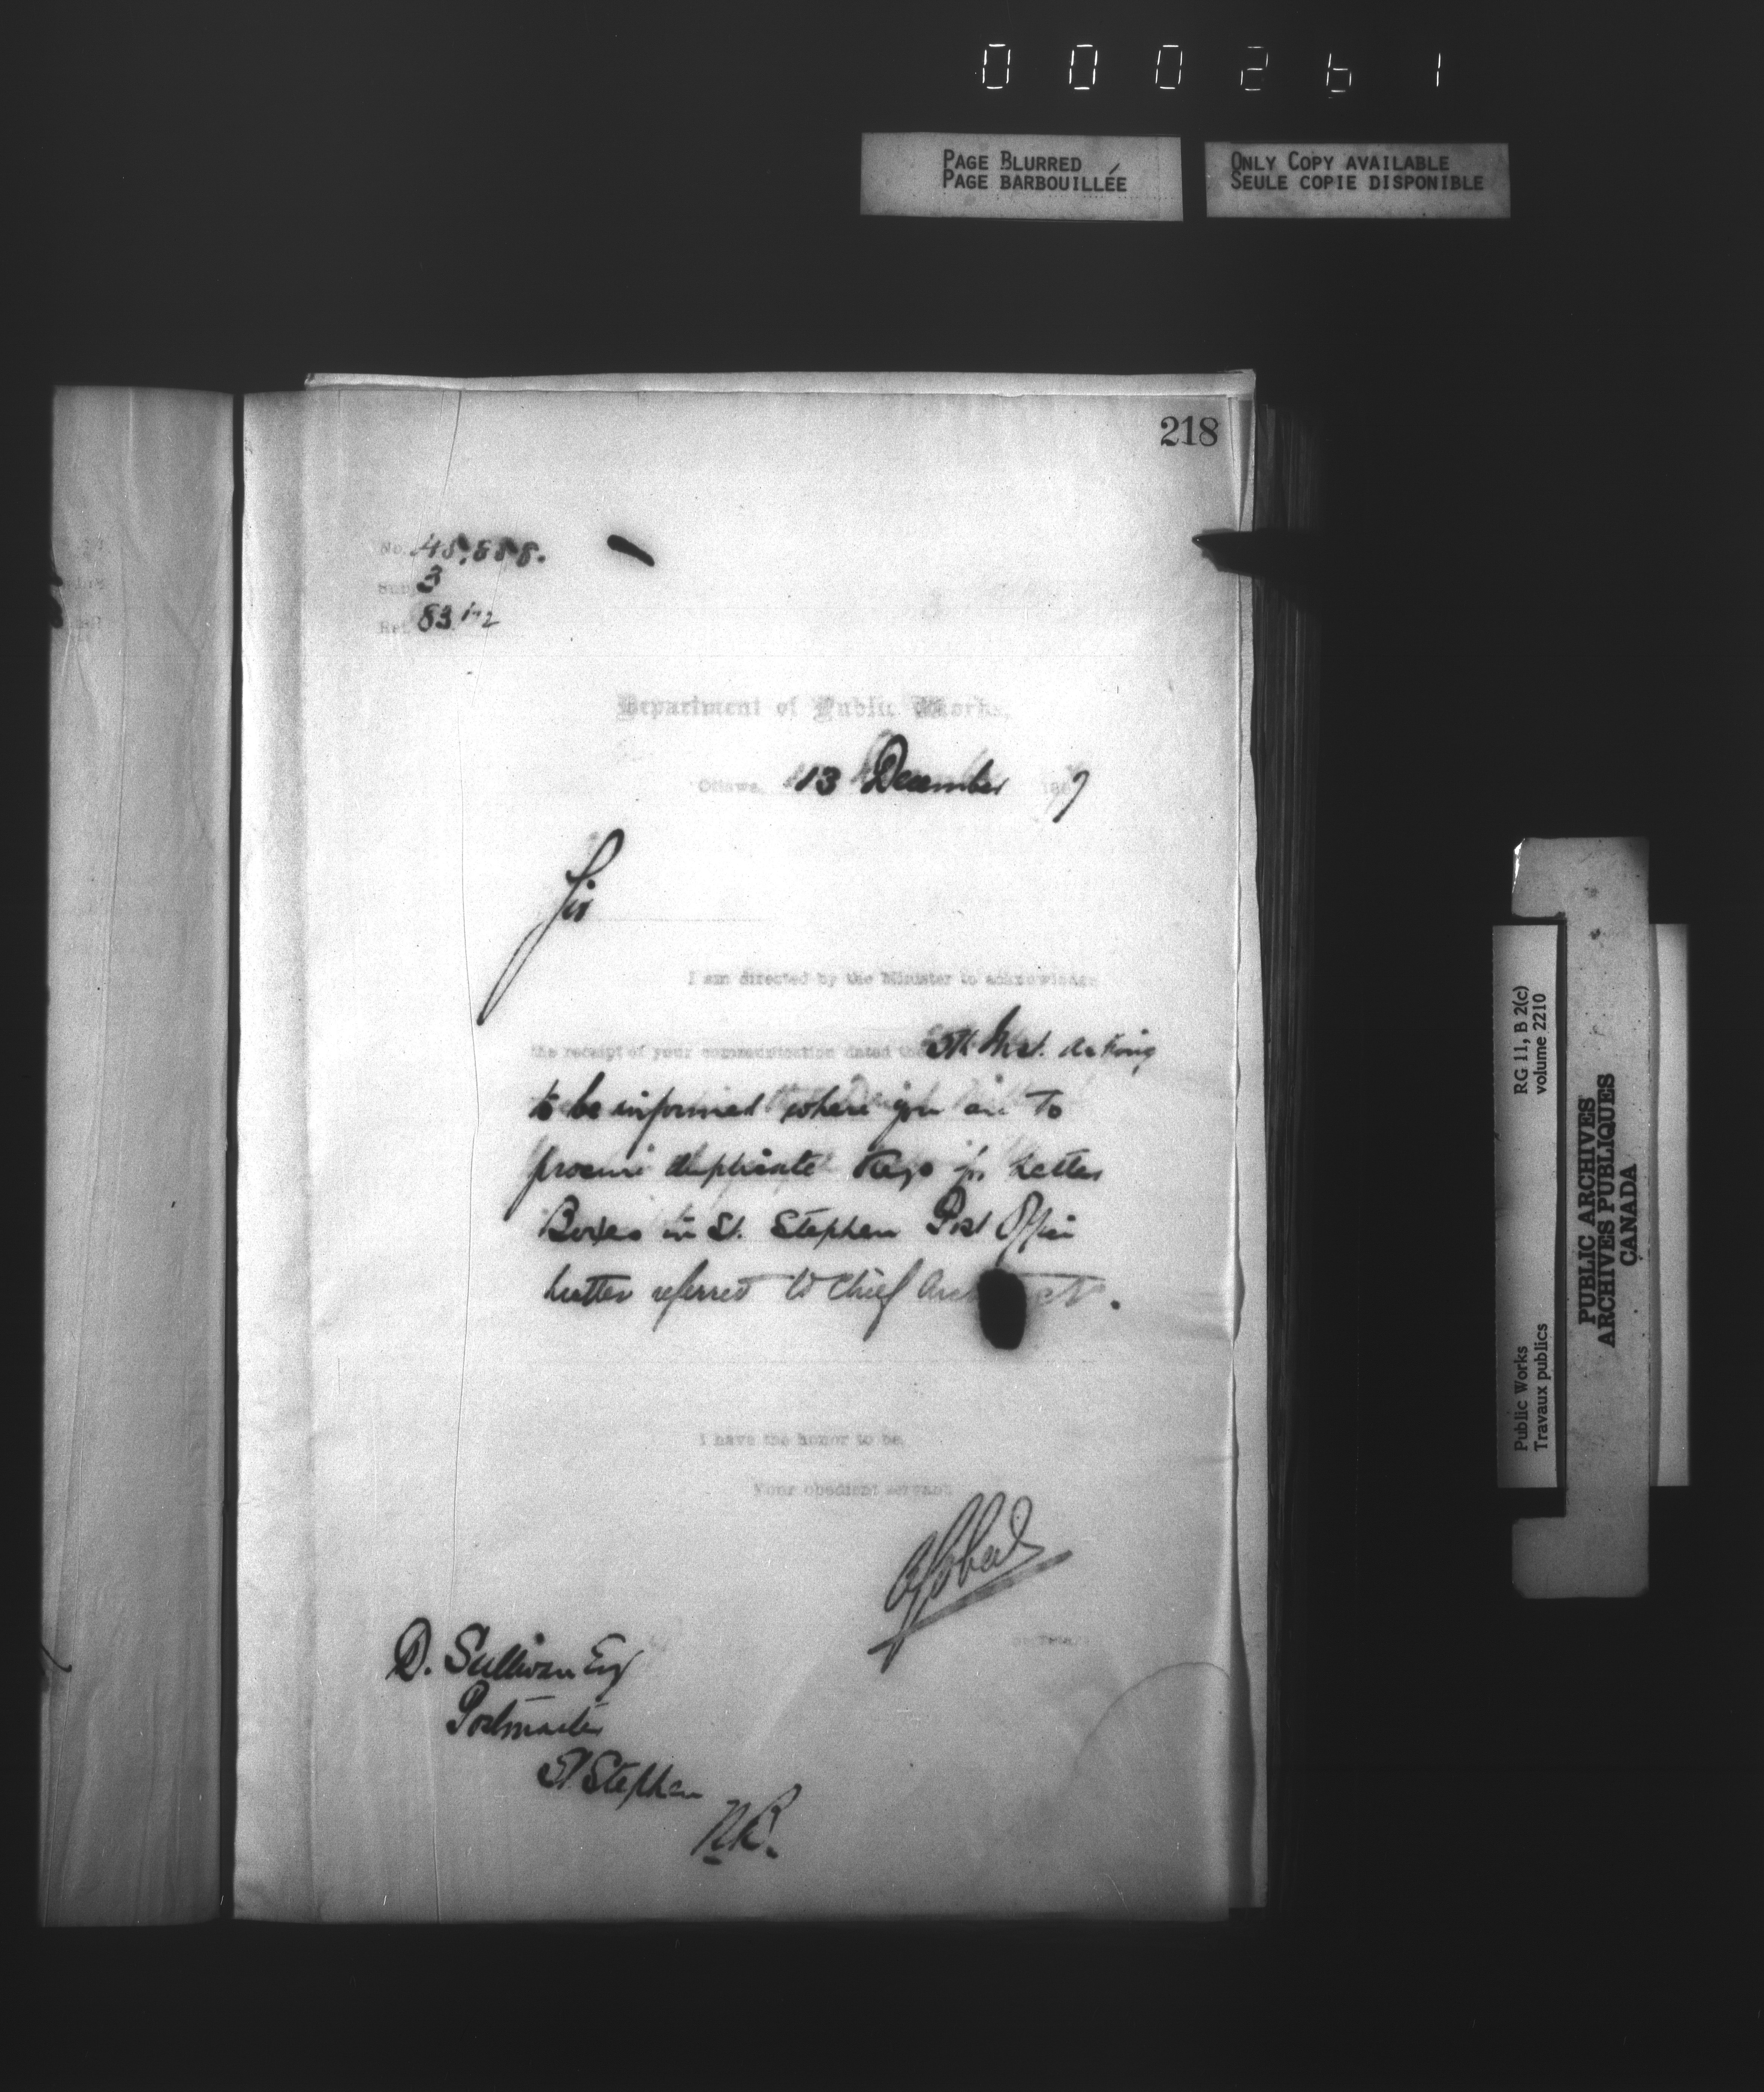 000261
PAGE BLURRED
PAGE BARBOUILLÉE
ONLY COPY AVAILABLE
SEULE COPIE DISPONIBLE
218
No.
Subj. 3
Ref.
Department of Public Works,
Ottawa, 13 December 7
Sir
I am directed by the Minister to acknowledge
the receipt of your communication dated the 5th Inst. asking
to be informed where you are to
procure duplicate keys for Letter
Boxes in St. Stephen Post Office
Letter referred to Chief Architect.
I have the honor to be,
Your obedient servant,
Secretary
D. Sullivan Esq
Postmaster
St Stephen
N.B.
RG 11, B 2(c)
volume 2210
Public Works
Travaux publics
PUBLIC ARCHIVES
ARCHIVES PUBLIQUES
CANADA